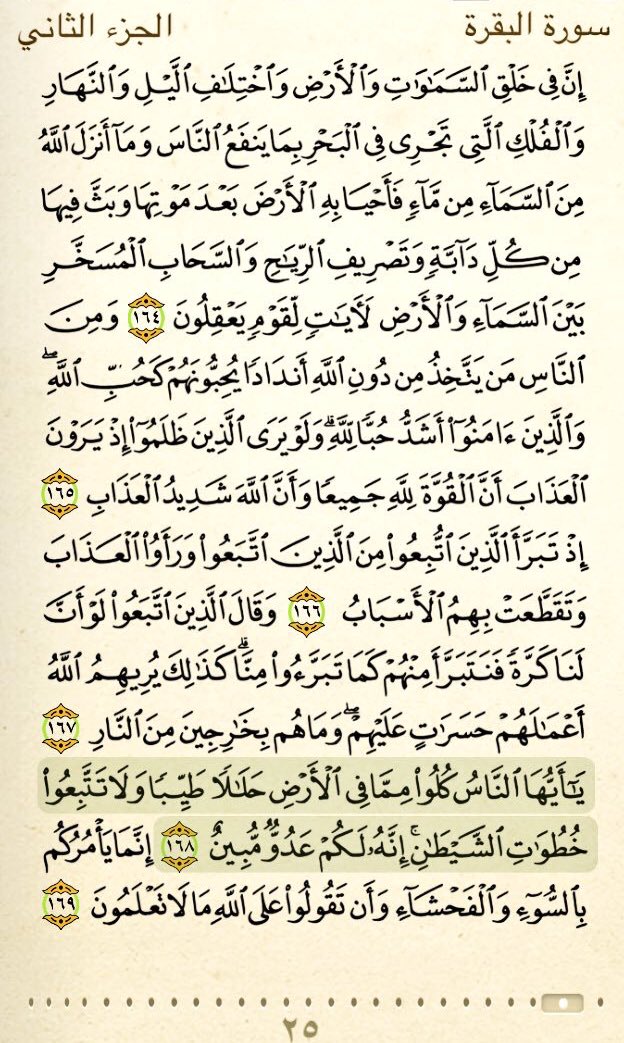 سورة البقرة الجزء الثاني
إِنَّ فِى خَلْقِ ٱلسَّمَـٰوَٰتِ وَٱلْأَرْضِ وَٱخْتِلَـٰفِ ٱلَّيْلِ وَٱلنَّهَارِ
وَٱلْفُلْكِ ٱلَّتِى تَجْرِى فِى ٱلْبَحْرِ بِمَا يَنفَعُ ٱلنَّاسَ وَمَآ أَنزَلَ ٱللَّهُ
مِنَ ٱلسَّمَآءِ مِن مَّآءٍ فَأَحْيَا بِهِ ٱلْأَرْضَ بَعْدَ مَوْتِهَا وَبَثَّ فِيهَا
مِن كُلِّ دَآبَّةٍ وَتَصْرِيفِ ٱلرِّيَـٰحِ وَٱلسَّحَابِ ٱلْمُسَخَّرِ
بَيْنَ ٱلسَّمَآءِ وَٱلْأَرْضِ لَـَٔايَـٰتٍ لِّقَوْمٍ يَعْقِلُونَ ١٦٤ وَمِنَ
ٱلنَّاسِ مَن يَتَّخِذُ مِن دُونِ ٱللَّهِ أَندَادًا يُحِبُّونَهُمْ كَحُبِّ ٱللَّهِ ۖ
وَٱلَّذِينَ ءَامَنُوٓا۟ أَشَدُّ حُبًّا لِّلَّهِ ۗ وَلَوْ يَرَى ٱلَّذِينَ ظَلَمُوٓا۟ إِذْ يَرَوْنَ
ٱلْعَذَابَ أَنَّ ٱلْقُوَّةَ لِلَّهِ جَمِيعًا وَأَنَّ ٱللَّهَ شَدِيدُ ٱلْعَذَابِ ١٦٥
إِذْ تَبَرَّأَ ٱلَّذِينَ ٱتُّبِعُوا۟ مِنَ ٱلَّذِينَ ٱتَّبَعُوا۟ وَرَأَوُا۟ ٱلْعَذَابَ
وَتَقَطَّعَتْ بِهِمُ ٱلْأَسْبَابُ ١٦٦ وَقَالَ ٱلَّذِينَ ٱتَّبَعُوا۟ لَوْ أَنَّ
لَنَا كَرَّةً فَنَتَبَرَّأَ مِنْهُمْ كَمَا تَبَرَّءُوا۟ مِنَّا ۗ كَذَٰلِكَ يُرِيهِمُ ٱللَّهُ
أَعْمَـٰلَهُمْ حَسَرَٰتٍ عَلَيْهِمْ ۖ وَمَا هُم بِخَـٰرِجِينَ مِنَ ٱلنَّارِ ١٦٧
يَـٰٓأَيُّهَا ٱلنَّاسُ كُلُوا۟ مِمَّا فِى ٱلْأَرْضِ حَلَـٰلًا طَيِّبًا وَلَا تَتَّبِعُوا۟
خُطُوَٰتِ ٱلشَّيْطَـٰنِ ۚ إِنَّهُۥ لَكُمْ عَدُوٌّ مُّبِينٌ ١٦٨ إِنَّمَا يَأْمُرُكُم
بِٱلسُّوٓءِ وَٱلْفَحْشَآءِ وَأَن تَقُولُوا۟ عَلَى ٱللَّهِ مَا لَا تَعْلَمُونَ ١٦٩
٢٥